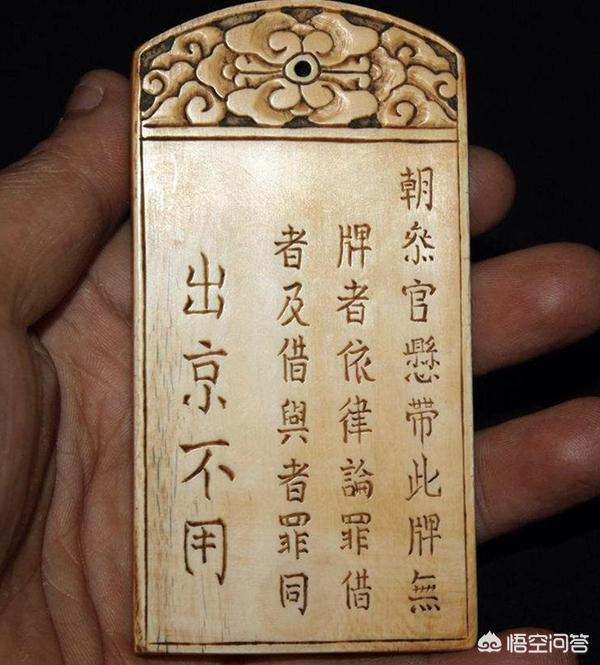 朝叅官懸帶此牌無
牌者依律論罪借
者及借與者罪同
出京不用
悟空问答